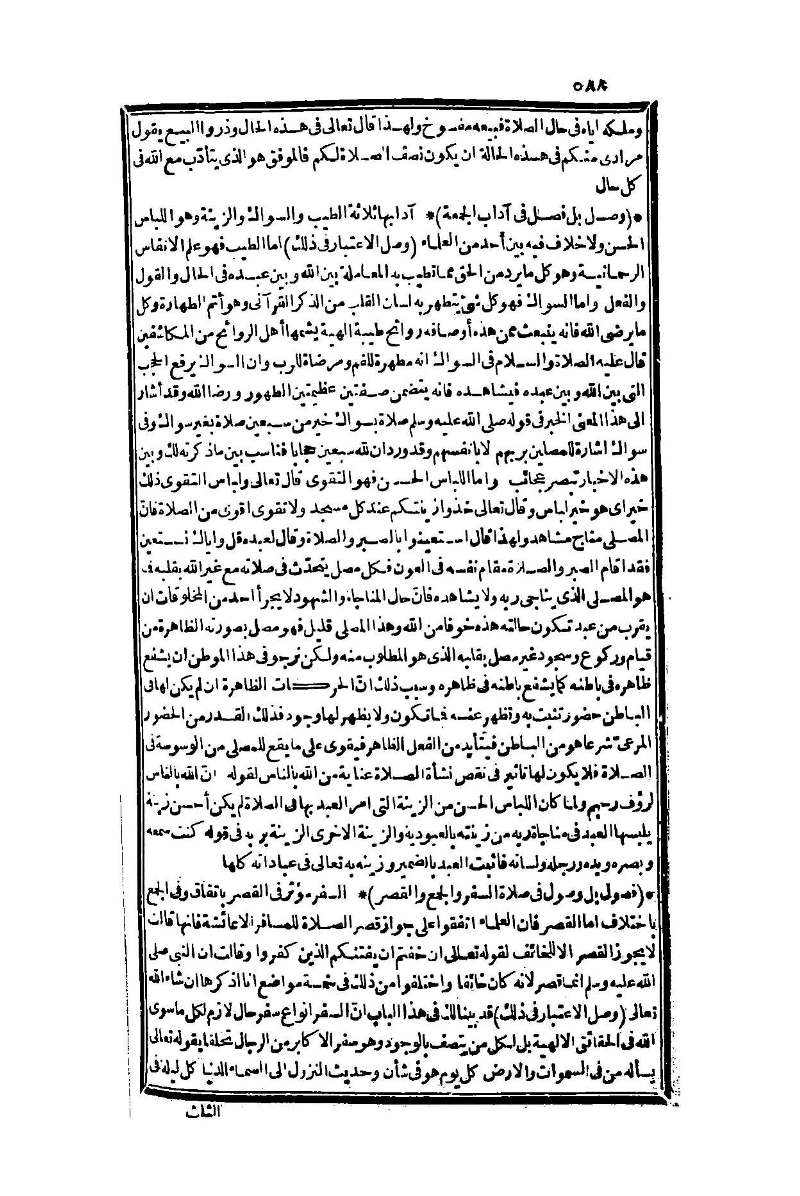 ٥٨٨
وملكه اياه فى حال الصلاة فبيعه مفسوخ ولهذا قال تعالى فى هذه الحال وذروا البيع يقول
مرادى منكم فى هذه الحالة ان يكون نصف الصلاة لكم فالموفق هو الذى يتأدب مع الله فى
كل حال
*(وصل بل فصل فى آداب الجمعة)* آدابها ثلاثة الطيب والسواك والزينة وهو اللباس
الحسن ولا خلاف فيه بين أحد من العلماء (وصل الاعتبار فى ذلك) اما الطيب فهو علم الانفاس
الرحمانية وهو كل ما يرد من الحق مما تطيب به المعاملة بين الله وبين عبده فى الحال والقول
والفعل واما السواك فهو كل شئ يتطهر به لسان القلب من الذكر القرآنى وهو أتم الطهارة وكل
ما يرضى الله فانه ينبعث ممن هذه أوصافه روائح طيبة الهية يشمها أهل الروائح من المكاشفين
قال عليه الصلاة والسلام فى السواك انه مطهرة للفم ومرضاة للرب وان السواك يرفع الحجب
التى بين الله وبين عبده فيشاهده فانه يتضمن صفتين عظيمتين الطهور ورضا الله وقد أشار
الى هذا المعنى الخبر فى قوله صلى الله عليه وسلم صلاة بسواك خير من سبعين صلاة بغير سواك وفى
سواك اشارة للمصلين بربهم لا بانفسهم وقد ورد ان لله سبعين حجابا فناسب بين ما ذكرته لك وبين
هذه الاخبار تبصر عجائب واما اللباس الحسن فهو التقوى قال تعالى ولباس التقوى ذلك
خير اى هو خير لباس وقال تعالى خذوا زينتكم عند كل مسجد ولا تقوى اقوى من الصلاة فان
المصلى مناج مشاهد ولهذا قال استعينوا بالصبر والصلاة وقال لعبده قل واياك نستعين
فقد اقام الصبر والصلاة مقام نفسه فى العون فكل مصل يتحدث فى صلاته مع غير الله بقلبه فـ
هو المصلى الذى يناجى ربه ولا يشاهده فان حال المناجاة والشهود لا يجرأ احد من المخلوقات ان
يقرب من عبد تكون حالته هذه خوفا من الله وهذا المصلى قليل فهو مصل بصورته الظاهرة من
قيام وركوع وسجود غير مصل بقلبه الذى هو المطلوب منه ولكن نرجو فى هذا الموطن ان يشفع
ظاهره فى باطنه كما يشفع باطنه فى ظاهره وسبب ذلك ان الحركات الظاهرة ان لم يكن لها فى
الباطن حضور تثبت به وتظهر عنه فما تكون ولا يظهر لها وجود فذلك القدر من الحضور
المرعى شرعا هو من الباطن فيتأيد من الفعل الظاهر فيقوى على ما يقع للمصلى من الوسوسة فى
الصلاة فلا يكون لها تاثير فى نقص نشأة الصلاة عناية من الله بالناس لقوله ان الله بالناس
لرؤف رحيم ولما كان اللباس الحسن من الزينة التى امر العبد بها فى الصلاة لم يكن أحسن زينة
يلبسها العبد فى مناجاة ربه من زينته بالعبودية والزينة الاخرى الزينة بربه فى قوله كنت سمعه
وبصره ويده ورجله ولسانه فاثبت العبد بالضمير وزينه به تعالى فى عباداته كلها
*(فصول بل وصول فى صلاة السفر والجمع والقصر)* السفر مؤثر فى القصر باتفاق وفى الجمع
باختلاف اما القصر فان العلماء اتفقوا على جواز قصر الصلاة للمسافر الا عائشة فانها قالت
لا يجوز القصر الا للخائف لقوله تعالى ان خفتم ان يفتنكم الذين كفروا وقالت ان النبى صلى
الله عليه وسلم انما قصر لانه كان خائفا واختلفوا من ذلك فى خمسة مواضع انا اذكرها ان شاء الله
تعالى (وصل الاعتبار فى ذلك) قد بينا لك فى هذا الباب ان السفر انواع سفر حال لازم لكل ما سوى
الله فى الحقائق الالهية بل لكل من يتصف بالوجود وهو سفر الاكابر من الرجال تخلقا بقوله تعالى
يسأله من فى السموات والارض كل يوم هو فى شأن وحديث النزول الى السماء الدنيا كل ليلة فى
الثلث